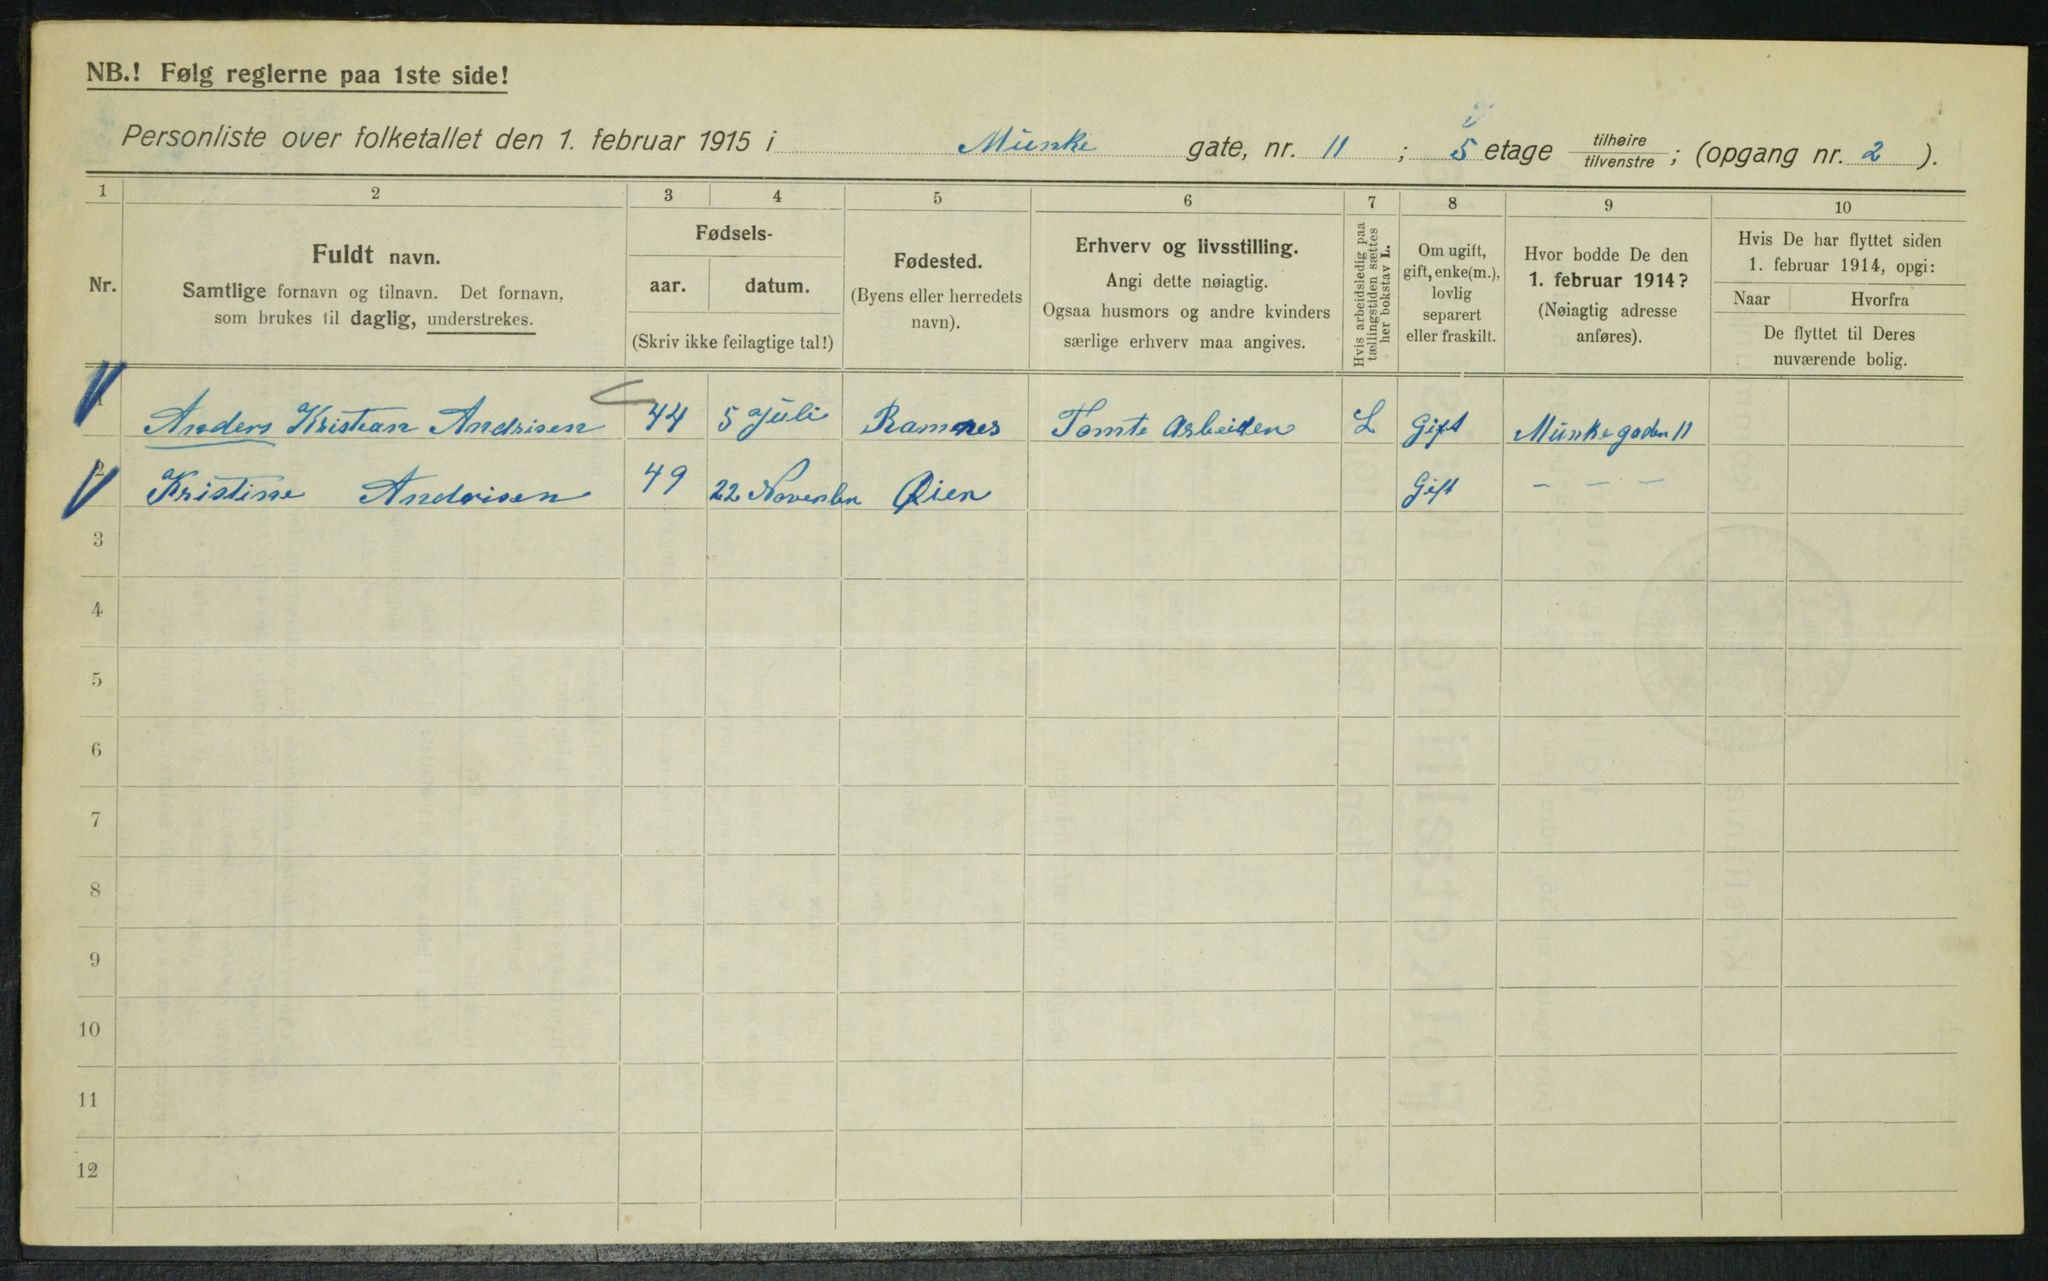 NB.! Følg reglerne paa 1ste side!
Personliste over folketallet den 1. februar 1915 i Munke gate, nr. 11 ; 5 etage tilhøire / tilvenstre ; (opgang nr. 2 ).
1 2 3 4 5 6 7 8 9 10
Nr.
Fuldt navn.
Samtlige fornavn og tilnavn. Det fornavn,
som brukes til daglig, understrekes.
Fødsels-
aar. datum.
(Skriv ikke feilagtige tal!)
Fødested.
(Byens eller herredets
navn).
Erhverv og livsstilling.
Angi dette nøiagtig.
Ogsaa husmors og andre kvinders
særlige erhverv maa angives.
Hvis arbeidsledig paa
tællingstiden sættes
her bokstav L.
Om ugift,
gift, enke(m.),
lovlig
separert
eller fraskilt.
Hvor bodde De den
1. februar 1914?
(Nøiagtig adresse
anføres).
Hvis De har flyttet siden
1. februar 1914, opgi:
Naar Hvorfra
De flyttet til Deres
nuværende bolig.
1 Anders Kristian Andrisen 44 5 Juli Ramnes Tomte Arbeiden L Gift Munkegaden 11
2 Kristine Andrisen 49 22 November Øien Gift – – –
3
4
5
6
7
8
9
10
11
12